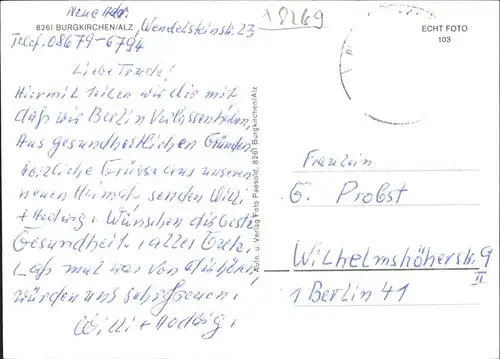 Neue Adr.
8261 BURGKIRCHEN/ALZ
Wendelsteinstr. 23
Telef. 08679-6794
+8269
ECHT FOTO
103
Liebe Trude!
Hiermit teilen wir dir mit
daß wir Berlin verlassen haben,
Aus gesundheitlichen Gründen
herzliche Grüsse aus unseren
neuen Heimat senden Willi
+ Hedwig. Wünschen dir beste
Gesundheit, alles Gute,
Laß mal was von dir hören,
würden uns sehr freuen.
Willi + Hedwig.
Aufn. u. Verlag Foto Paesold, 8261 Burgkirchen/Alz
Fraulein
G. Probst
Wilhelmshöherstr. 9
II
1 Berlin 41